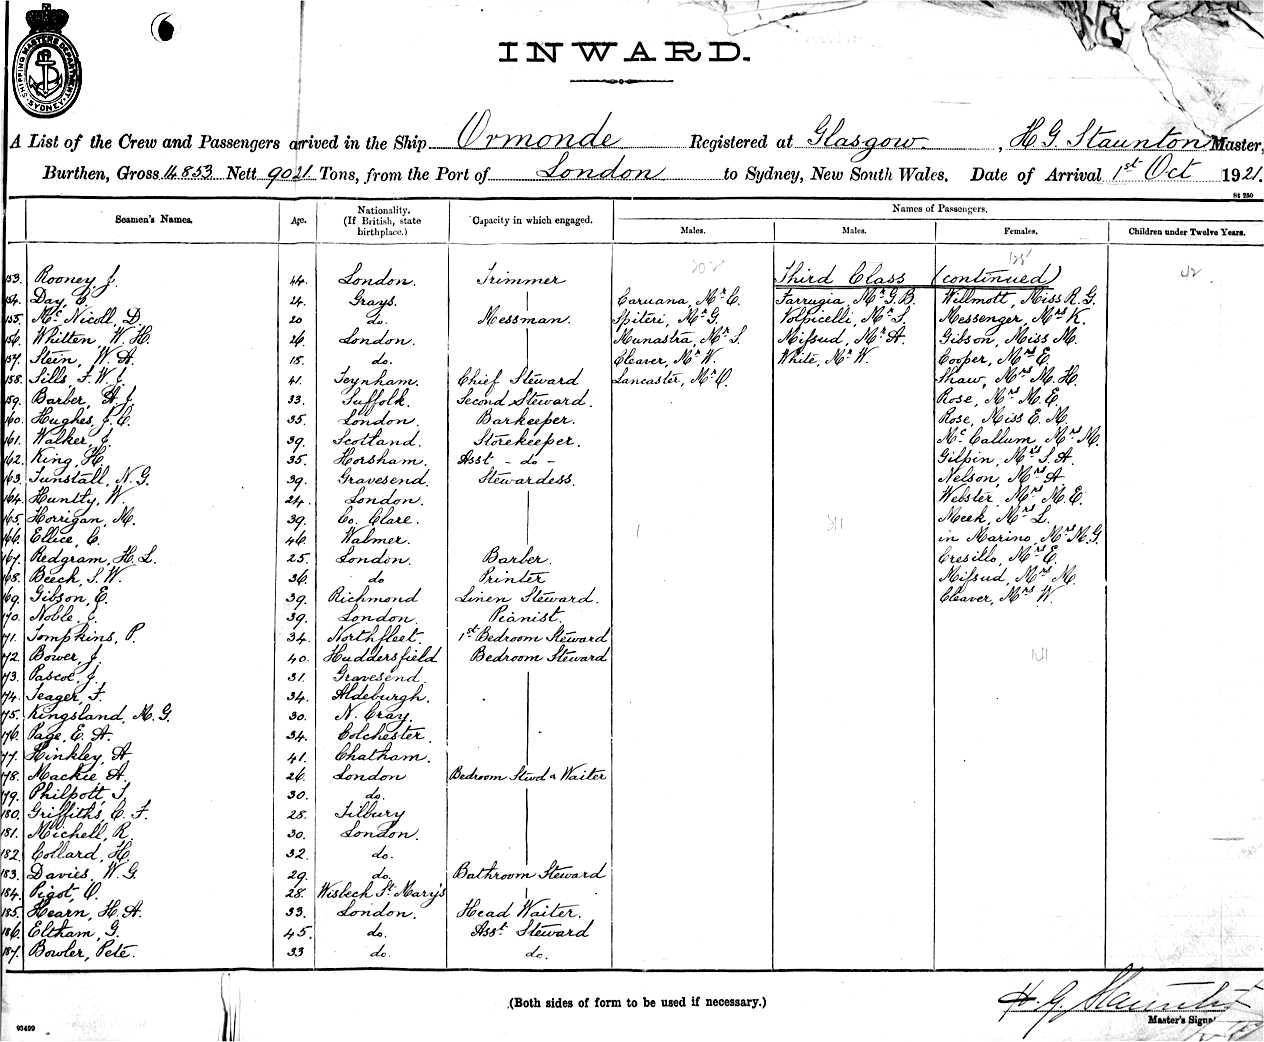 SHIPPING MASTER'S DEPARTMENT
SYDNEY
6
INWARD.
A List of the Crew and Passengers arrived in the Ship Ormonde Registered at Glasgow, H G Staunton Master,
Burthen, Gross 14853 Nett 9021 Tons, from the Port of London to Sydney, New South Wales. Date of Arrival 1st Oct 1921.
St 250
Seamen's Names. Age. Nationality. (If British, state birthplace.) Capacity in which engaged. Names of Passengers.
Males. Males. Females. Children under Twelve Years.
153. Rooney, J. 44. London. Trimmer Third Class (continued)
154. Day, C. 24. Grays. Caruana, Mr C. Farrugia, Mr G.B. Willmott, Miss R.G.
155. Mc Nicoll D. 20 do. Messman. Spiteri, Mr G. Volpicelli, Mr S. Messenger, Mrs K.
156. Whitten, W. H. 26. London. Munastra, Mr S. Mifsud, Mr A. Gibson, Miss M.
157. Stein, W. A. 18. do. Cleaver, Mr W. White, Mr W. Cooper, Mrs E.
158. Sills F. W. J. 41. Teynham. Chief Steward Lancaster, Mr O. Shaw, Mrs M. H.
159. Barber, A. J. 33. Suffolk. Second Steward. Rose, Mrs M. E.
160. Hughes, J. C. 35. London. Barkeeper. Rose, Miss E. M.
161. Walker, J. 39. Scotland. Storekeeper. Mc Callum, Mrs M.
162. King, H. 35. Horsham. Asst - do - Gilpin, Mrs S. A.
163. Tunstall, N. G. 39. Gravesend. Stewardess. Nelson, Mrs A.
164. Huntly, W. 24. London. Webster, Mrs M. E.
165. Horrigan, M. 39. Co. Clare. Meek, Mrs L.
166. Ellice, C. 46. Walmer. in Marino, Mrs M.G.
167. Redgram, H. L. 25. London. Barber. Cresillo, Mrs E.
168. Beech, S. W. 36. do Printer Mifsud, Mrs M.
169. Gibson, E. 39. Richmond Linen Steward. Cleaver, Mrs W.
170. Noble, J. 39. London. Pianist.
171. Tompkins, P. 34. Northfleet. 1st Bedroom Steward
172. Bower, J. 40. Huddersfield Bedroom Steward
173. Pascoe, J. 31. Gravesend.
174. Seager, F. 34. Aldeburgh.
175. Kingsland, M. G. 30. N. Cray.
176. Page, E. A. 34. Colchester.
177. Hinkley, A 41. Chatham.
178. Mackie A. 26. London Bedroom Stwd & Waiter
179. Philpott, S. 30. do.
180. Griffiths, C. F. 28. Tilbury
181. Michell, R. 30. London.
182. Collard, H. 32. do.
183. Davies, W. G. 29. do. Bathroom Steward
184. Pigot, O. 28. Wisbech St Mary's
185. Hearn, H. A. 33. London. Head Waiter.
186. Eltham, G. 45. do. Asst Steward
187. Bowler, Pete. 33 do. do.
(Both sides of form to be used if necessary.)
H. G. Staunton
Master's
93499